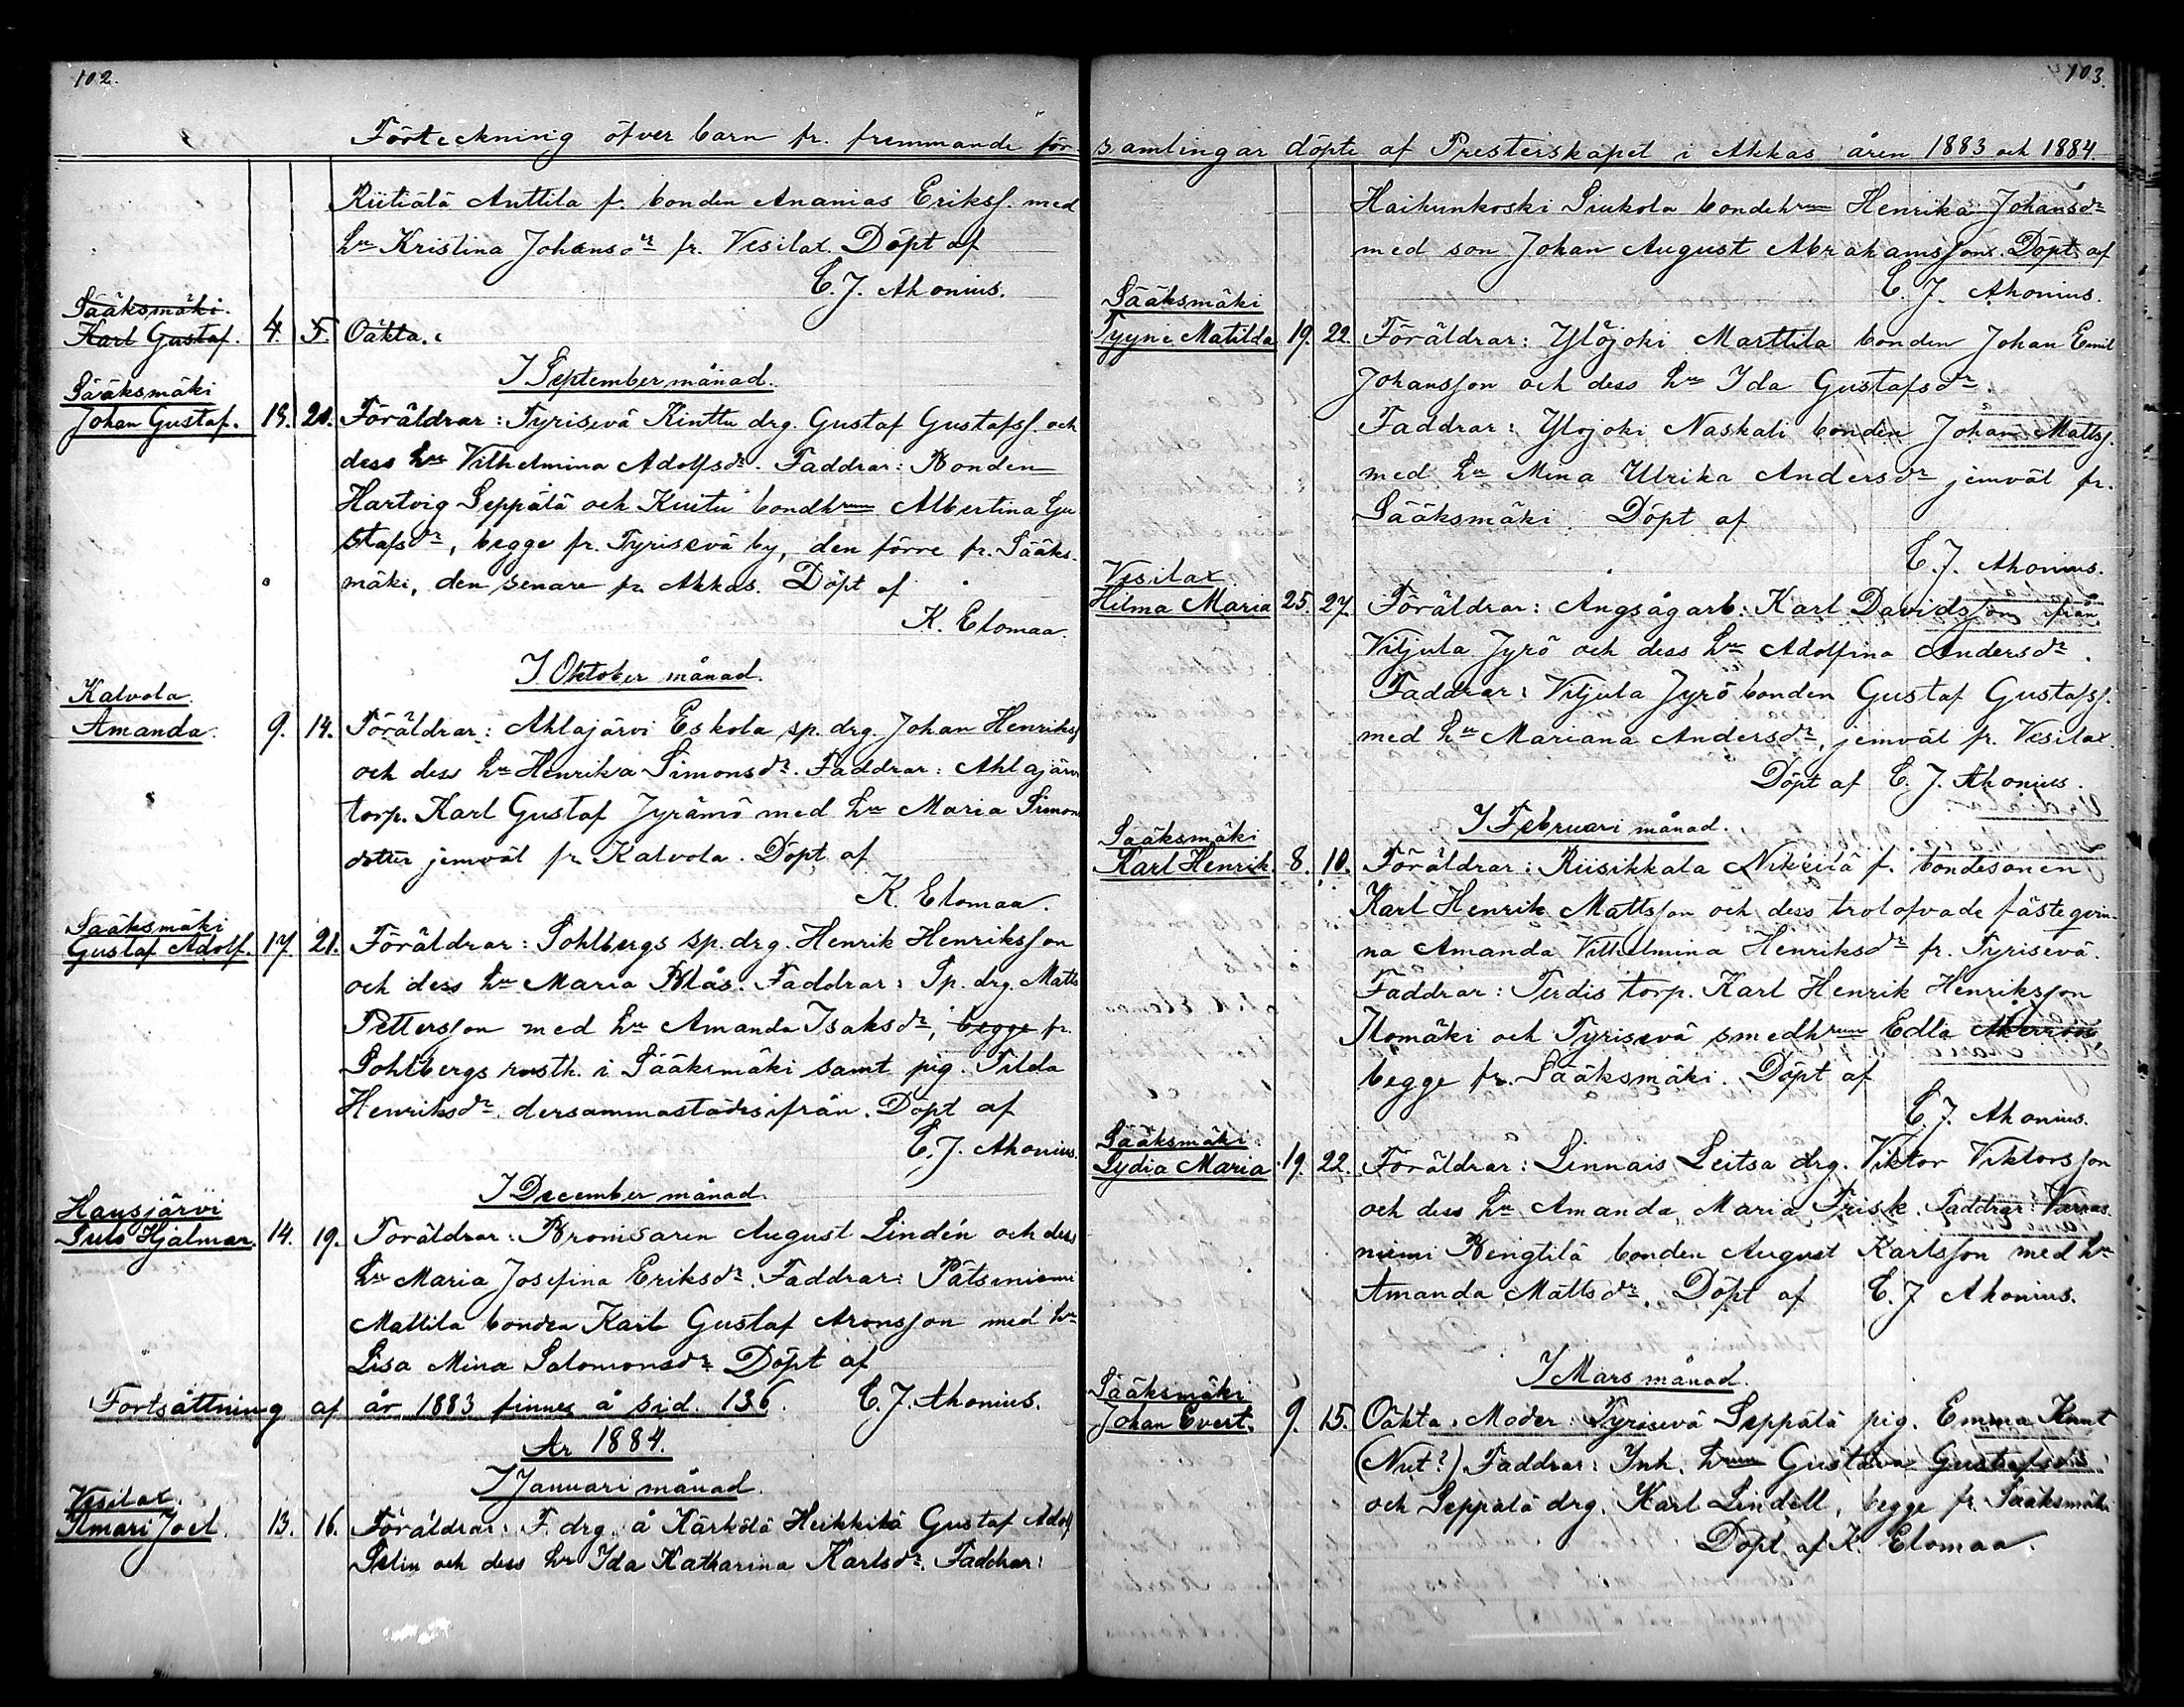 102.
Förteckning öfver barn fr. fremmande för-
Riitiälä Anttila f. bonden Ananias Eriksf. med
hru Kristina Johansdr fr. Vesilax. Döpt af
E. J. Ahonius.
Sääksmäki.
Karl Gustaf. 4. 5. Oäkta.
I September månad.
Sääksmäki
Johan Gustaf. 18. 20. Föräldrar: Tyrisevä Kinttu drg. Gustaf Gustafsf. och
dess hru Vilhelmina Adolfsdr. Faddrar: Bonden
Hartvig Seppälä och Kuitu bondhrun Albertina Gu
stafsdr, begge fr. Tyrisevä by, den förre fr. Sääks-
mäki, den senare fr. Akkas. Döpt af
K. Elomaa.
I Oktober månad.
Kalvola.
Amanda. 9. 14. Föräldrar: Ahlajärvi Eskola sp. drg. Johan Henriksf
och dess hru Henrika Simonsdr. Faddrar: Ahlajärvi
torp. Karl Gustaf Jyrämö med hru Maria Simons
dotter jemväl fr. Kalvola. Döpt af
K. Elomaa.
Sääksmäki
Gustaf Adolf. 17. 21. Föräldrar: Sohlbergs sp. drg. Henrik Henriksson
och dess hru Maria Blås. Faddrar: Sp. drg. Matts
Pettersson med hru Amanda Isaksdr, begge fr.
Sohlbergs rusth. i Sääksmäki samt pig. Tilda
Henriksdr. dersammastädesifrån. Döpt af
E. J. Ahonius.
I December månad.
Hausjärvi
Sulo Hjalmar. 14. 19. Föräldrar: Bromsaren August Lindén och dess
hru Maria Josefina Eriksdr. Faddrar: Pätsiniemi
Mattila bonden Karl Gustaf Aronsson med hru
Lisa Mina Salomonsdr Döpt af
Fortsättning af år 1883 finnes å sid. 136. E. J. Ahonius.
År 1884.
I Januari månad.
Vesilax.
Ilmari Joel. 13. 16. Föräldrar: F. drg. å Kärkölä Heikkilä Gustaf Adolf
Selin och dess hru Ida Katharina Karlsdr. Faddrar:
103.
samlingar döpte af Presterskapet i Akkas åren 1883 och 1884.
Haihunkoski Siukola bondehrun Henrika Johansdr
med son Johan August Abrahamsson. Döpt af
E. J. Ahonius.
Sääksmäki
Tyyni Matilda 19. 22. Föräldrar: Ylöjoki Marttila bonden Johan Emil
Johansson och dess hru Ida Gustafsdr.
Faddrar: Ylojoki Naskali bonden Johan Mattsf.
med hru Mina Ulrika Andersdr jemväl fr.
Sääksmäki. Döpt af
E. J. Ahonius.
Vesilax.
Hilma Maria 25. 27. Föräldrar: Ångsågarb. Karl Davidsson från
Viljula Jyrö och dess hru Adolfina Andersdr.
Faddrar: Viljula Jyrö bonden Gustaf Gustafsf.
med hru Mariana Andersdr, jemväl fr. Vesilax.
Döpt af E. J. Ahonius.
I Februari månad.
Sääksmäki
Karl Henrik. 8. 10. Föräldrar: Riisikkala Nikkilä f. bondesonen
Karl Henrik Mattsson och dess trolofvade fästeqvin-
na Amanda Vilhelmina Henriksdr fr. Tyrisevä.
Faddrar: Terdis torp. Karl Henrik Henriksson
Ilomäki och Tyrisevä smedhrun Edla
begge fr. Sääksmäki. Döpt af
E. J. Ahonius.
Sääksmäki
Lydia Maria. 19. 22. Föräldrar: Linnais Leitsa drg. Viktor Viktorsson
och dess hru Amanda Maria Frisk. Faddrar: Varnas-
niemi Bengtilä bonden August Karlsson med hru
Amanda Mattsdr. Döpt af E. J. Ahonius.
I Mars månad.
Sääksmäki
Johan Evert. 9. 15. Oäkta. Moder: Tyrisevä Seppälä pig. Emma Knut
(Nut?). Faddrar: Inh. hrun Gustava Gustafsdr
och Seppälä drg. Karl Lindell, begge fr. Sääksmäki
Döpt af K. Elomaa.